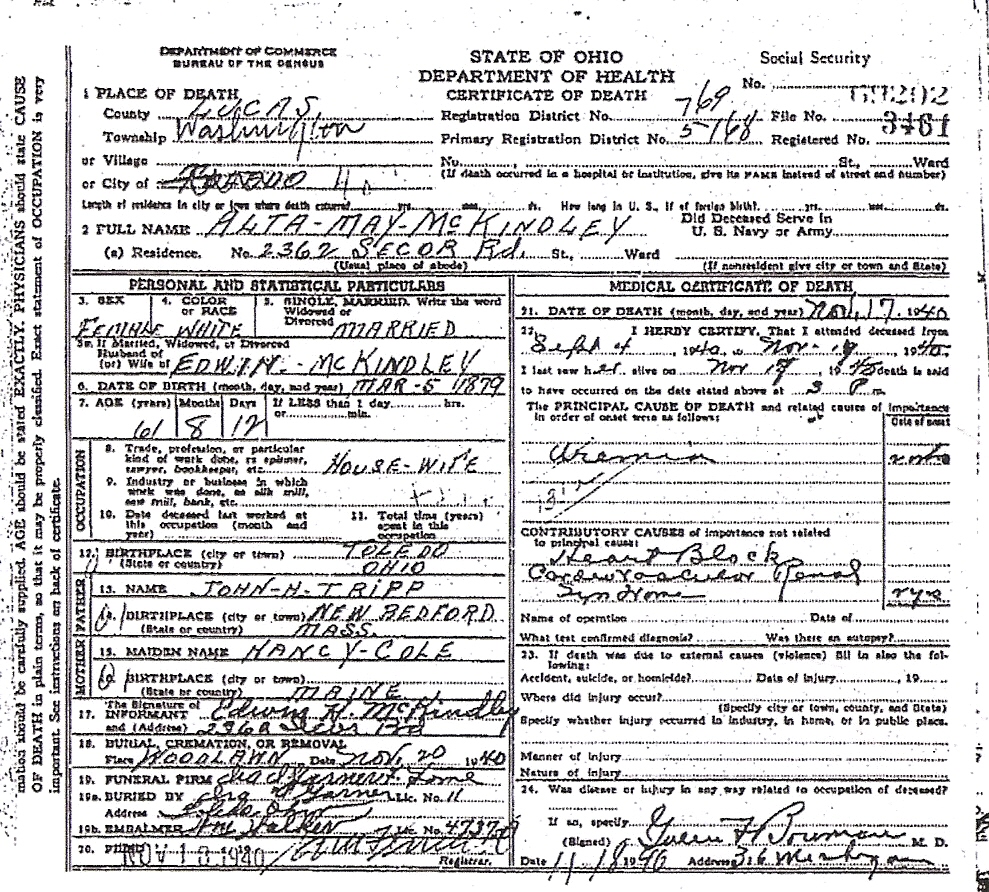 DEPARTMENT OF COMMERCE
BUREAU OF THE CENSUS
STATE OF OHIO
DEPARTMENT OF HEALTH
CERTIFICATE OF DEATH
Social Security
No.
1 PLACE OF DEATH
County LUCAS
Township Washington
or Village
or City of TOLEDO
Registration District No. 769 File No. 69202
Primary Registration District No. 5768 Registered No. 3461
No. St., Ward
(If death occurred in a hospital or institution, give its NAME instead of street and number)
Length of residence in city or town where death occurred yrs. mos. ds. How long in U. S., if of foreign birth? yrs. mos. ds.
2 FULL NAME ALTA-MAY-MCKINDLEY
Did Deceased Serve in
U. S. Navy or Army
(a) Residence. No. 2362 SECOR Rd. St., Ward
(Usual place of abode) (If nonresident give city or town and State)
PERSONAL AND STATISTICAL PARTICULARS
3. SEX 4. COLOR or RACE 5. SINGLE, MARRIED, Write the word Widowed or Divorced
FEMALE WHITE MARRIED
5a. If Married, Widowed, or Divorced
Husband of
(or) Wife of EDWIN-MCKINDLEY
6. DATE OF BIRTH (month, day, and year) MAR-5 1879
7. AGE (years) Months Days If LESS than 1 day hrs.
or min.
61 8 12
OCCUPATION
8. Trade, profession, or particular
kind of work done, as spinner,
sawyer, bookkeeper, etc. HOUSE-WIFE
9. Industry or business in which
work was done, as silk mill,
saw mill, bank, etc.
10. Date deceased last worked at
this occupation (month and
year)
11. Total time (years)
spent in this
occupation
12. BIRTHPLACE (city or town) TOLEDO
(State or country) OHIO
FATHER
13. NAME JOHN-H-TRIPP
14. BIRTHPLACE (city or town) NEW BEDFORD
(State or country) MASS.
MOTHER
15. MAIDEN NAME NANCY-COLE
BIRTHPLACE (city or town)
(State or country) MAINE
The Signature of
17. INFORMANT Edwin H. McKindley
and (Address)
18. BURIAL, CREMATION, OR REMOVAL
Place WOODLAWN Date NOV. 20 1940
19. FUNERAL FIRM
19a. BURIED BY Lic. No. 11
Address
19b. EMBALMER Wm Walker Lic. No.
20. FILED NOV 18 1940
Registrar.
MEDICAL CERTIFICATE OF DEATH
21. DATE OF DEATH (month, day, and year) Nov. 17 1940
22. I HERBY CERTIFY, That I attended deceased from
Sept 4, 1940, to Nov- 1940
I last saw her alive on Nov death is said
to have occurred on the date stated above at 3 P m
The PRINCIPAL CAUSE OF DEATH and related causes of Importance
in order of onset were as follows:
Date of onset
Uremia
CONTRIBUTORY CAUSES of importance not related
to principal cause:
Heart Block
Cardiovascular Renal
Syndrome
Name of operation Date of
What test confirmed diagnosis? Was there an autopsy?
23. If death was due to external causes (violence) fill in also the fol-
lowing:
Accident, suicide, or homicide? Date of injury , 19
Where did injury occur?
(Specify city or town, county, and State)
Specify whether injury occurred in industry, in home, or in public place.
Manner of injury
Nature of injury
24. Was disease or injury in any way related to occupation of deceased?
If so, specify
(Signed) Bowman M. D.
Date 11/18 19 Address 316 Michigan
mation should be carefully supplied. AGE should be stated EXACTLY. PHYSICIANS should state CAUSE
OF DEATH in plain terms, so that it may be properly classified. Exact statement of OCCUPATION is very
important. See instructions on back of certificate.